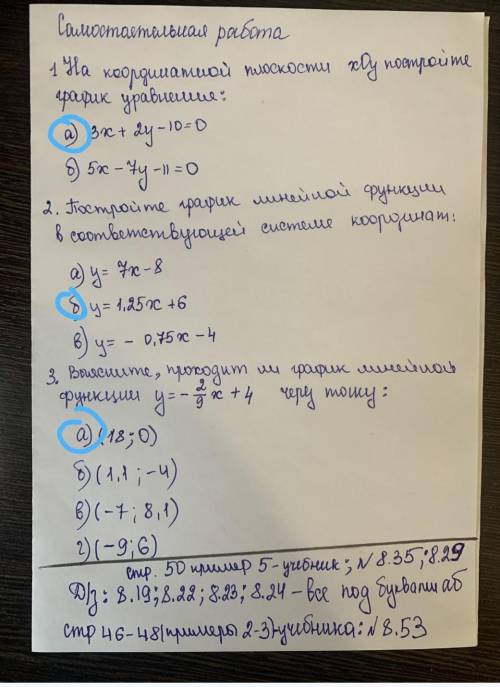 Самостоятельная работа
1 На координатной плоскости xOy постройте
график уравнения:
а) 3x + 2y - 10 = 0
б) 5x - 7y - 11 = 0
2. Постройте график линейной функции
в соответствующей системе координат:
а) y = 7x - 8
б) y = 1,25x + 6
в) y = - 0,75x - 4
3. Выясните, проходит ли график линейной
функции y = - 2/9 x + 4 через точку:
а) (18; 0)
б) (1,1; -4)
в) (-7; 8,1)
г) (-9; 6)
стр. 50 пример 5-учебник; №8.35; 8.29
Д/з: 8.19; 8.22; 8.23; 8.24 - все под буквами аб
стр 46-48 (примеры 2-3)-учебника: №8.53